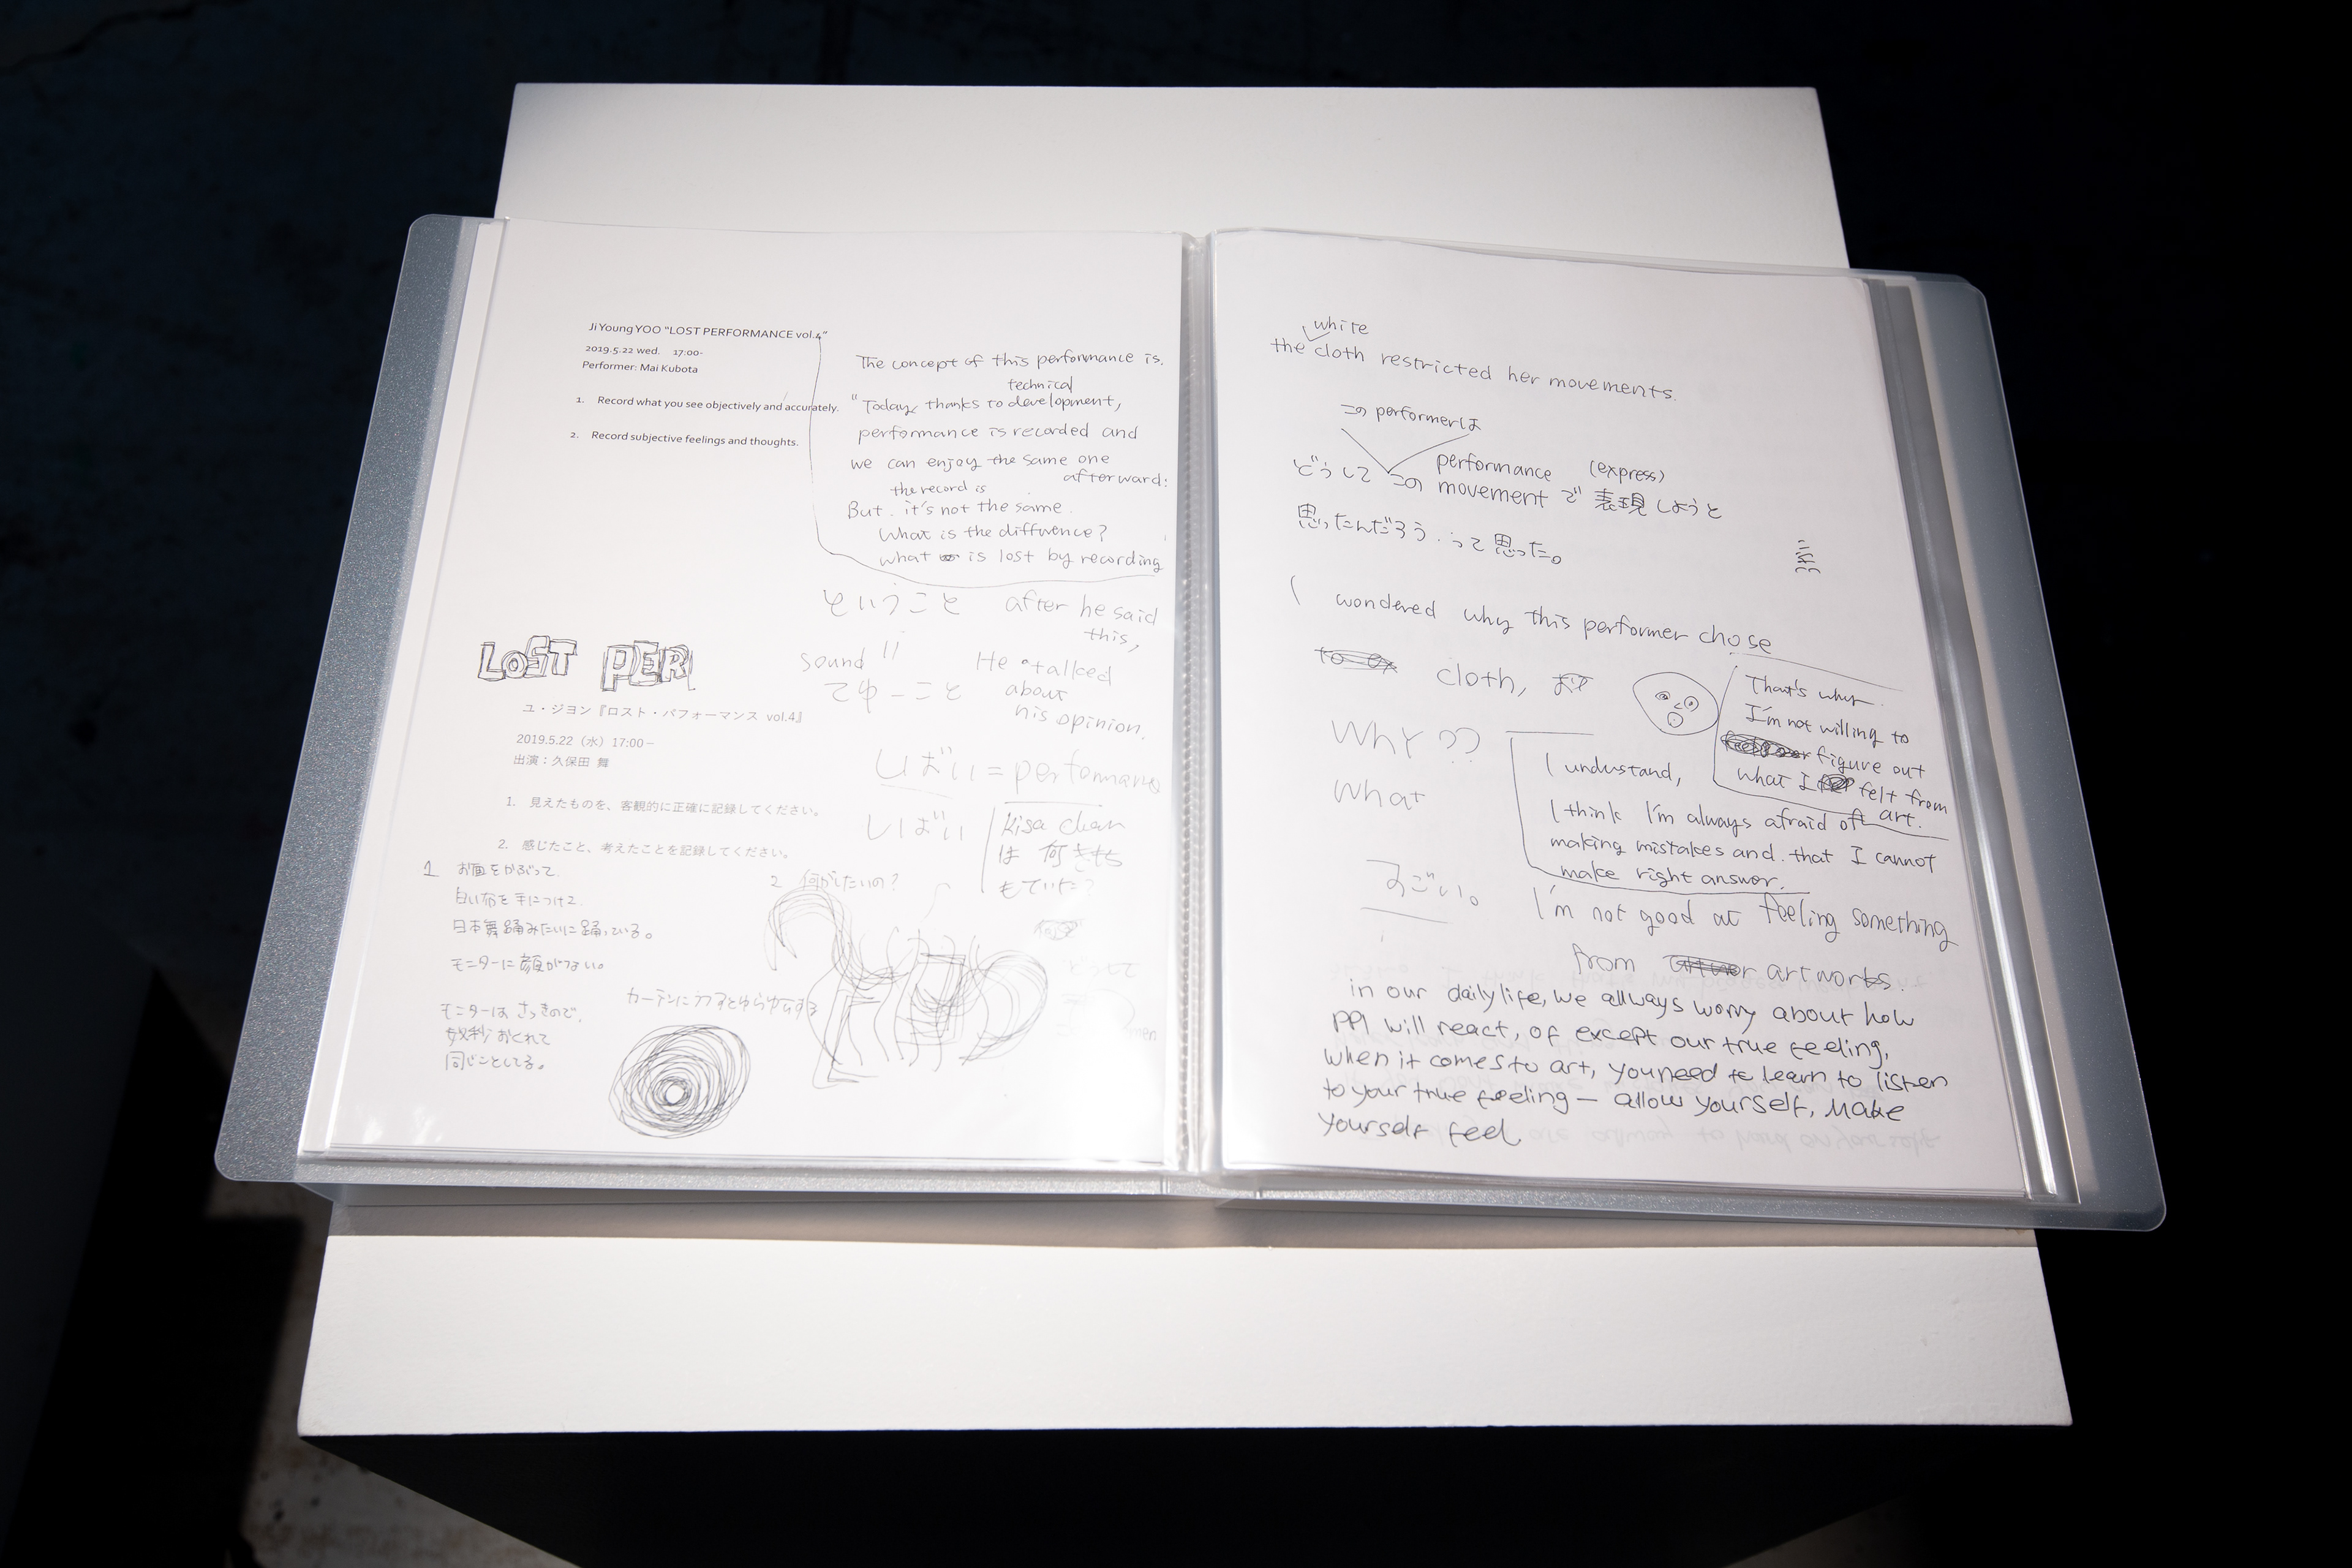 JiYoung YOO "LOST PERFORMANCE vol.4"
2019.5.22 wed. 17:00-
Performer: Mai Kubota
1. Record what you see objectively and accurately.
2. Record subjective feelings and thoughts.
The concept of this performance is.
technical
"Today, thanks to development,
performance is recorded and
we can enjoy the same one
afterward:
the record is
But. it's not the same.
What is the diffurence?
what is lost by recording
ということ after he said
this,
sound 11
てゆーこと He talked
about
his opinion.
LOST PER
ユ・ジヨン『ロスト・パフォーマンス vol.4』
2019.5.22（水）17:00－
出演：久保田 舞
1. 見えたものを、客観的に正確に記録してください。
2. 感じたこと、考えたことを記録してください。
しばい = performans
しばい
Kisa chan
は 何きもち
もていた？
1 お面をかぶって
白い布を手につけて
日本舞踊みたいに踊っている。
モニターに顔がない。
モニターは さっきので、
数秒おくれて
同じことしてる。
2 何がしたいの？
カーテンにうつすとゆらゆらする
どうして
men
white
the cloth restricted her movements.
この performerは
performance (express)
どうして この movement で 表現しようと
思ったんだろう.って思った。
I wondered why this performer chose
to ex cloth,
Why ??
what
すごい。
That's why
I'm not willing to
figure out
what I felt from
art.
I undustand,
I think I'm always afraid of
making mistakes and that I cannot
make right answer.
I'm not good at feeling something
from artworks.
in our daily life, we allways worry about how
PPl will react, of except our true feeling,
when it comes to art, you need to learn to listen
to your true feeling — allow yourself, Make
yourself feel